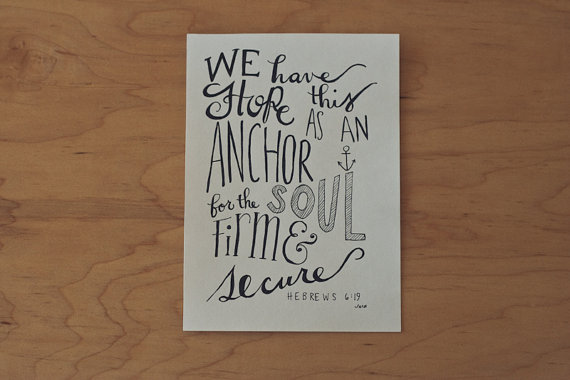 WE have
this
HOPE
AS AN
ANCHOR
for the SOUL
firm &
secure
HEBREWS 6:19